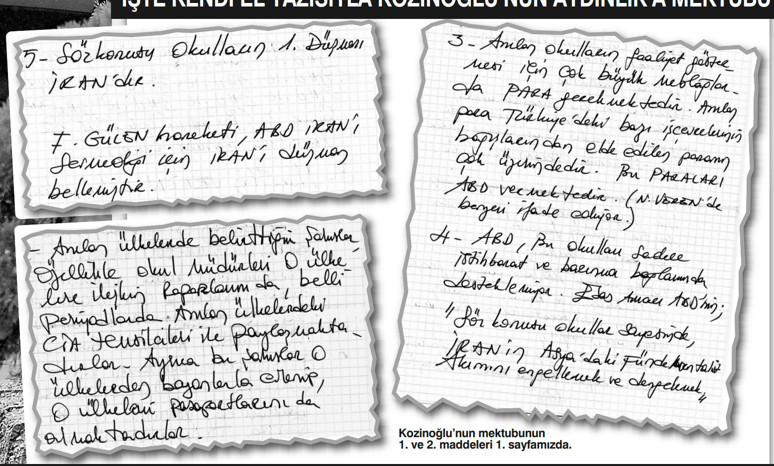 İŞTE KENDİ EL YAZISIYLA KOZİNOĞLU'NUN AYDINLIK'A MEKTUBU
5- Söz konusu okulların 1. Düşmanı
İRAN'dır.
7. GÜLEN hareketi, ABD İRAN'ı
Sevmediği için İRAN'ı düşman
bellemiştir.
- Anılan ülkelerde belirttiğim şahıslar
Özellikle okul müdürleri O ülke-
lere ilişkin Raporlarını da, belli
Periyotlarda. Anılan ülkelerdeki
CİA temsilcileri ile paylaşmakta-
dırlar. Ayrıca bu şahıslar O
ülkelerden bayanlarla evlenip,
O ülkelerin pasaportlarını da
almaktadırlar.
3- Anılan okulların faaliyet göster-
mesi için çok büyük meblağlar-
da PARA gerekmektedir. Anılan
para Türkiye'deki bazı işverenlerin
bağışlarından elde edilen paranın
çok üzerindedir. Bu PARALARI
ABD vermektedir. (N. VEREN'de
benzeri ifade ediyor.)
4- ABD, Bu okulları sadece
istihbarat ve barınma bağlamında
desteklemiyor. Esas Amacı ABD'nin;
"Söz konusu okullar sayesinde,
İRAN'ın Asya'daki Fundemantalist
Akımını engellemek ve dengelemek"
Kozinoğlu'nun mektubunun
1. ve 2. maddeleri 1. sayfamızda.